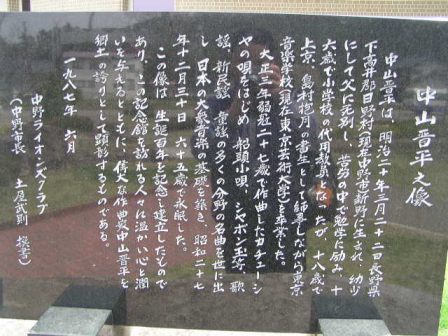 中山晋平之像
中山晋平は、明治二十年三月二十二日長野県
下高井郡日野村(現在中野市新野)に生まれ、幼少
にして父に死別し、苦労の中で勉学に励み、十
六歳で小学校の代用教員となったが、十八歳で
上京、島村抱月の書生として師事しながら東京
音楽学校(現在東京芸術大学)を卒業した。
大正三年弱冠二十七歳で作曲したカチューシ
ャの唄をはじめ、船頭小唄、シャボン玉等、歌
謡、新民謡、童謡の多くの分野の名曲を世に出
し、日本の大衆音楽の基礎を築き、昭和二十七
年十二月三十日、六十五歳で永眠した。
この像は、生誕百年を記念し建立したもので
あり、この記念館を訪れる人々に温かい心と潤
いを与えるとともに、偉大な作曲家中山晋平を
郷土の誇りとして顕彰するものである。
一九八七年 六月
中野ライオンズクラブ
(中野市長 土屋武則 撰書)